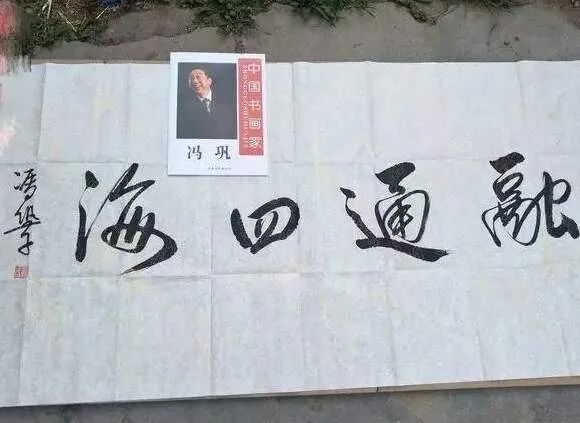 融通四海
冯巩
中国书画家
冯巩